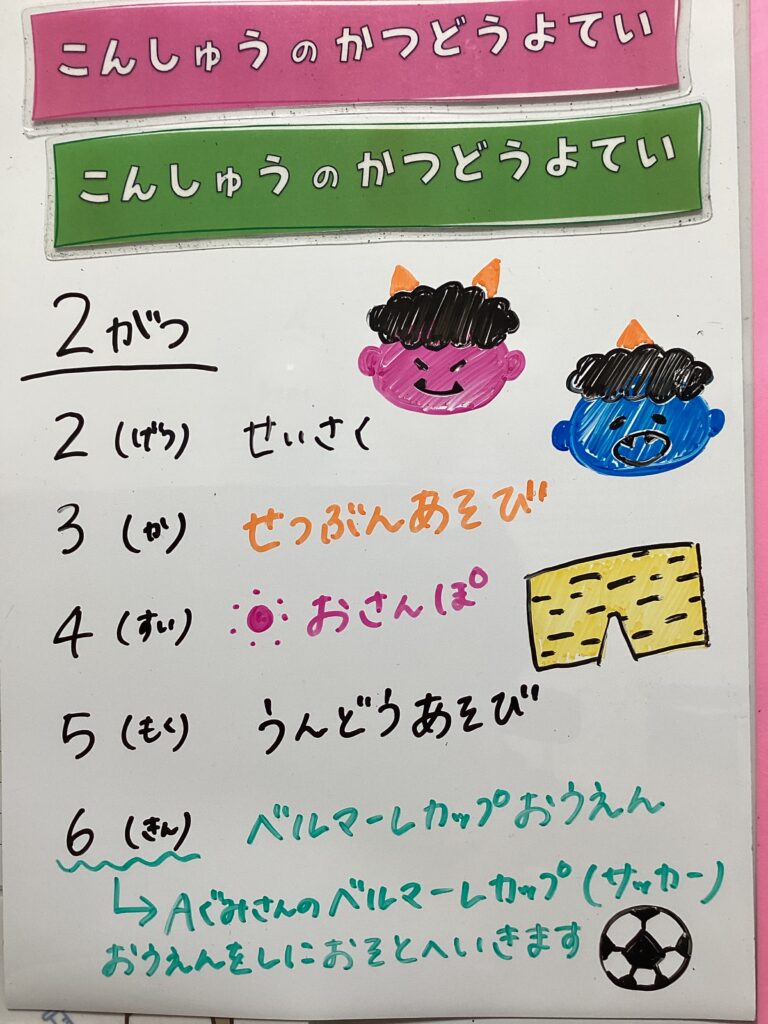 こんしゅうのかつどうよてい
こんしゅうのかつどうよてい
2がつ
2(げつ) せいさく
3(か) せつぶんあそび
4(すい) おさんぽ
5(もく) うんどうあそび
6(きん) ベルマーレカップおうえん
↳Aぐみさんのベルマーレカップ(サッカー)
おうえんをしにおそとへいきます